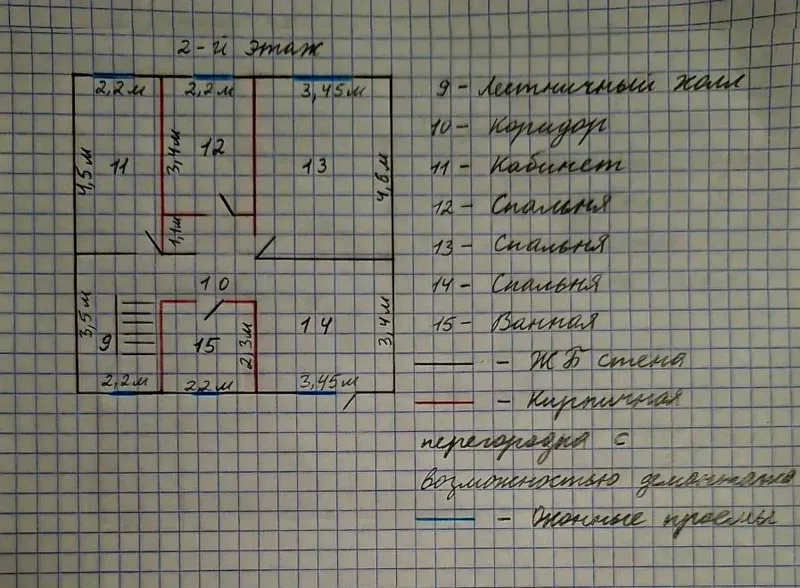 2-й этаж
2,2м 2,2м 3,45м
4,5м 11 3,4м 12 13 4,6м
1,1м
10
3,5м 9 15 2,3м 14 3,4м
2,2м 2,2м 3,45м
9 - Лестничный холл
10 - Коридор
11 - Кабинет
12 - Спальня
13 - Спальня
14 - Спальня
15 - Ванная
- ЖБ стена
- Кирпичная
перегородка с
возможностью демонтажа
- Оконные проемы